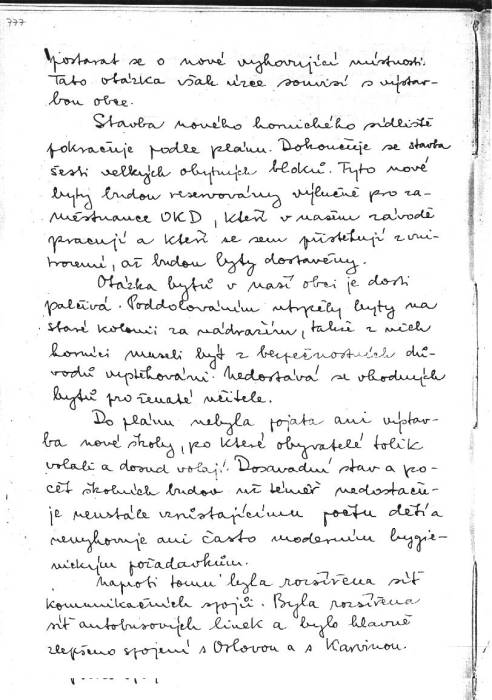 777
postarat se o nové vyhovující místnosti.
Tato otázka však úzce souvisí s výstav-
bou obce.
Stavba nového hornického sídliště
pokračuje podle plánu. Dokončuje se stavba
šesti velkých obytných bloků. Tyto nové
byty budou reservovány výlučně pro za-
městnance OKD, kteří v našem závodě
pracují a kteří se sem přistěhují z vni-
trozemí, až budou byty dostavěny.
Otázka bytů v naší obci je dosti
palčivá. Poddolováním utrpěly byty na
staré kolonii za nádražím, takže z nich
horníci museli být z bezpečnostních dů-
vodů vystěhováni. Nedostává se vhodných
bytů pro ženaté učitele.
Do plánu nebyla pojata ani výstav-
ba nové školy, po které obyvatelé tolik
volali a dosud volají. Dosavadní stav a po-
čet školních budov už téměř nedostaču-
je neustále vzrůstajícímu počtu dětí a
nevyhovuje ani často moderním hygie-
nickým požadavkům.
Naproti tomu byla rozšířena síť
komunikačních spojů. Byla rozšířena
síť autobusových linek a bylo hlavně
zlepšeno spojení s Orlovou a s Karvinou.